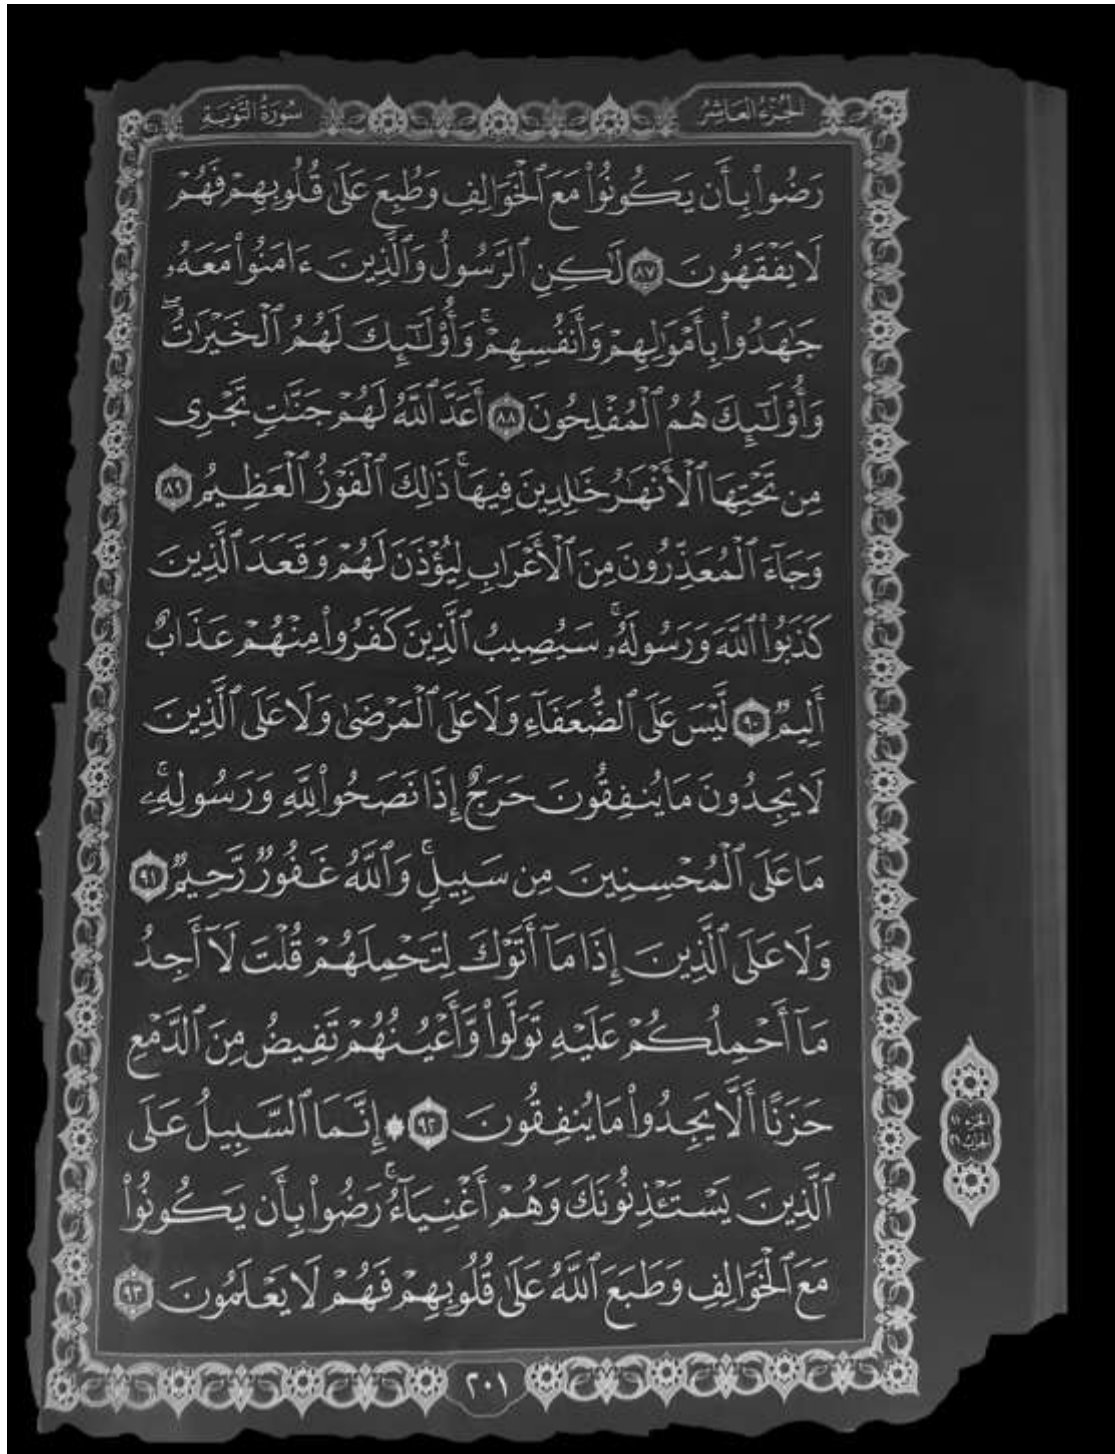 الجزء العاشر
سورة التوبة
رَضُوا۟ بِأَن يَكُونُوا۟ مَعَ ٱلْخَوَالِفِ وَطُبِعَ عَلَىٰ قُلُوبِهِمْ فَهُمْ
لَا يَفْقَهُونَ ٨٧ لَٰكِنِ ٱلرَّسُولُ وَٱلَّذِينَ ءَامَنُوا۟ مَعَهُۥ
جَٰهَدُوا۟ بِأَمْوَٰلِهِمْ وَأَنفُسِهِمْ ۚ وَأُو۟لَٰٓئِكَ لَهُمُ ٱلْخَيْرَٰتُ ۖ
وَأُو۟لَٰٓئِكَ هُمُ ٱلْمُفْلِحُونَ ٨٨ أَعَدَّ ٱللَّهُ لَهُمْ جَنَّٰتٍ تَجْرِى
مِن تَحْتِهَا ٱلْأَنْهَٰرُ خَٰلِدِينَ فِيهَا ۚ ذَٰلِكَ ٱلْفَوْزُ ٱلْعَظِيمُ ٨٩
وَجَآءَ ٱلْمُعَذِّرُونَ مِنَ ٱلْأَعْرَابِ لِيُؤْذَنَ لَهُمْ وَقَعَدَ ٱلَّذِينَ
كَذَبُوا۟ ٱللَّهَ وَرَسُولَهُۥ ۚ سَيُصِيبُ ٱلَّذِينَ كَفَرُوا۟ مِنْهُمْ عَذَابٌ
أَلِيمٌ ٩٠ لَّيْسَ عَلَى ٱلضُّعَفَآءِ وَلَا عَلَى ٱلْمَرْضَىٰ وَلَا عَلَى ٱلَّذِينَ
لَا يَجِدُونَ مَا يُنفِقُونَ حَرَجٌ إِذَا نَصَحُوا۟ لِلَّهِ وَرَسُولِهِۦ ۚ
مَا عَلَى ٱلْمُحْسِنِينَ مِن سَبِيلٍ ۚ وَٱللَّهُ غَفُورٌ رَّحِيمٌ ٩١
وَلَا عَلَى ٱلَّذِينَ إِذَا مَآ أَتَوْكَ لِتَحْمِلَهُمْ قُلْتَ لَآ أَجِدُ
مَآ أَحْمِلُكُمْ عَلَيْهِ تَوَلَّوا۟ وَّأَعْيُنُهُمْ تَفِيضُ مِنَ ٱلدَّمْعِ
حَزَنًا أَلَّا يَجِدُوا۟ مَا يُنفِقُونَ ٩٢ ۞ إِنَّمَا ٱلسَّبِيلُ عَلَى
ٱلَّذِينَ يَسْتَـْٔذِنُونَكَ وَهُمْ أَغْنِيَآءُ ۚ رَضُوا۟ بِأَن يَكُونُوا۟
مَعَ ٱلْخَوَالِفِ وَطَبَعَ ٱللَّهُ عَلَىٰ قُلُوبِهِمْ فَهُمْ لَا يَعْلَمُونَ ٩٣
الجزء ١١
الحزب ٢١
٢٠١